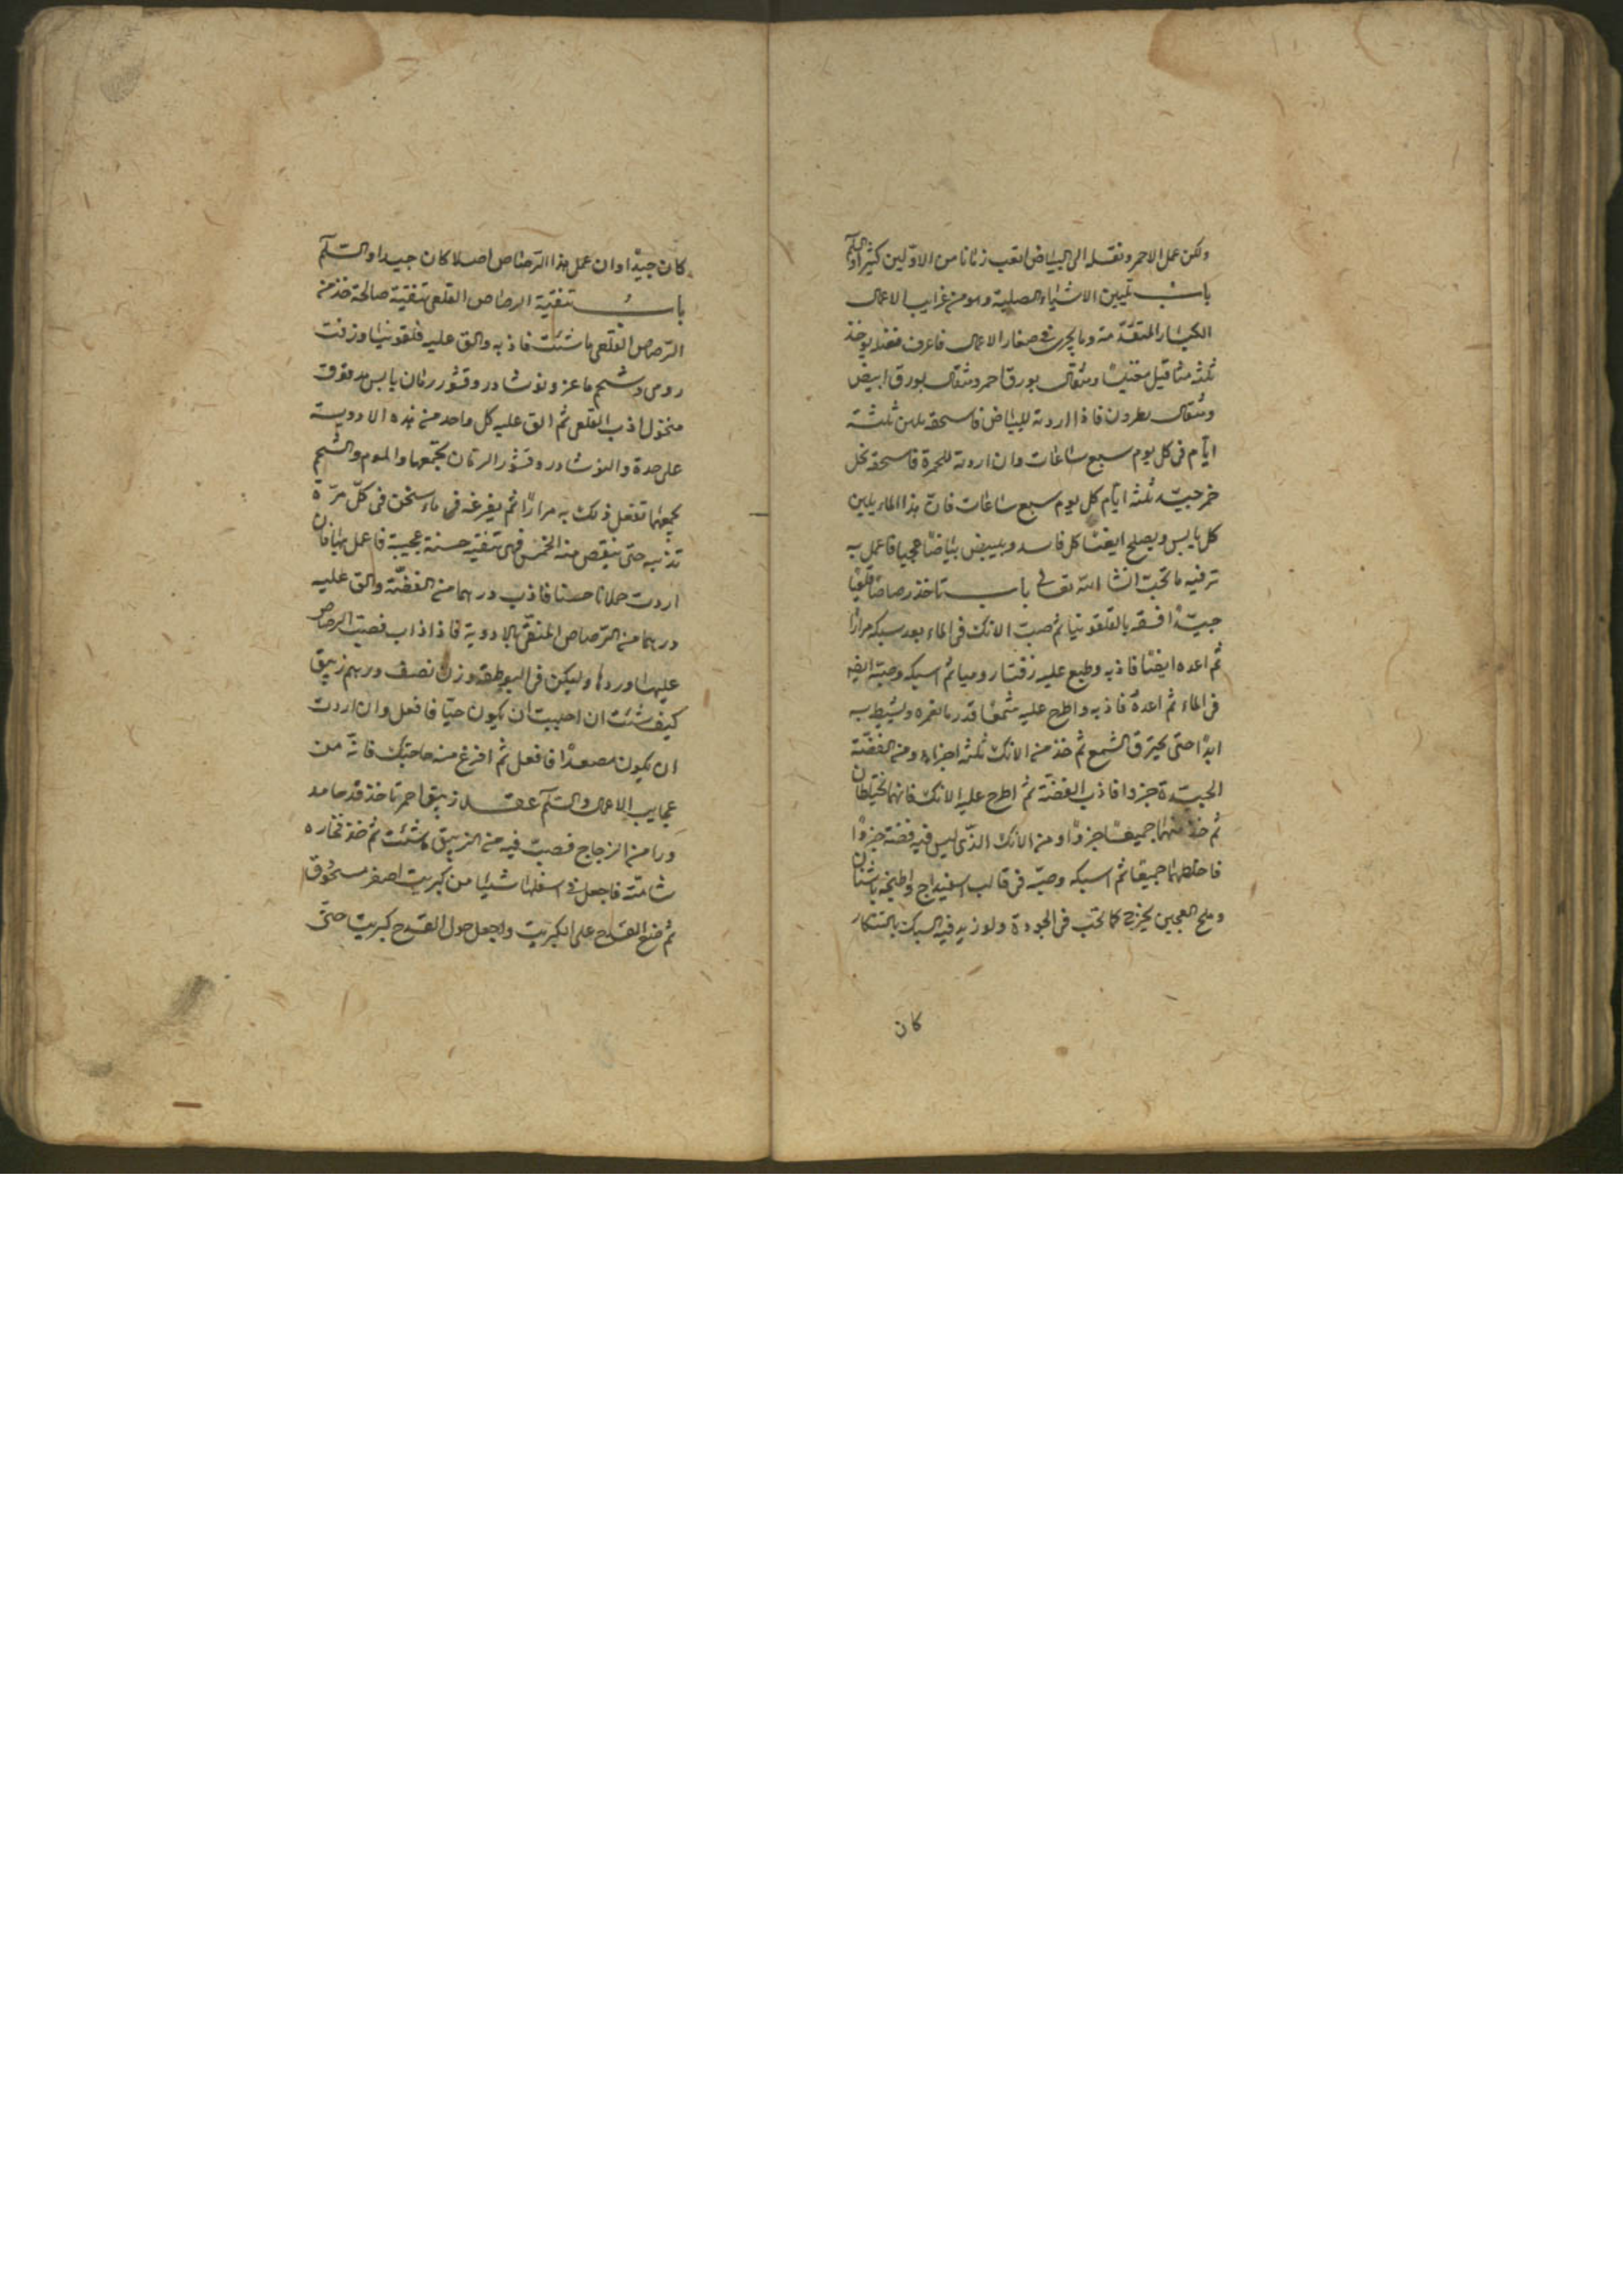 ولكن عمل الاحمر ونقله الى البياض اتعب زمانا من الاوّلين كثيرا والسّلم
باب تليين الاشياء الصلبة وهو من غرايب الاعمال
الكبار المتقدّمة وما يجرى فى صغار الاعمال فاعرف فضله يوخذ
ثلثه مثاقيل مغنيسا ومثقال بورق احمر ومثقال بورق ابيض
ومثقال نطرون فاذا اردته للبياض فاسحقه بلبن ثلثة
ايّام فى كل يوم سبع ساعات وان اردته للحمرة فاسحقه بخل
خمر جيّد ثلثه ايّام كل يوم سبع ساعات فانّ هذا الماء يلين
كل يابس ويصلح ايضا كل فاسد ويبيض بياضا عجيبا فاعمل به
تر فيه ما تحبّ انشا الله تعالى باب تاخذ رصاصا قلعيا
جيّدا فنقه بالقلقونيا ثم صبّ الانك فى الماء بعد سبكه مرارا
ثم اعده ايضا فاذبه وطبع عليه زفتا روميا ثم اسبكه وصبّه ايضا
فى الماء ثم اعده فاذبه واطرح عليه شمعا قدر ما يغمره وليشيط به
ابدا حتى يحترق الشمع ثم خذ من الانك ثلثه اجزاء ومن الفضّة
الجيّدة جزوا فاذب الفضّة ثم اطرح عليه الانك فانهما يختلطان
ثم خذ منهما جميعا جزوا ومن الانك الذّى ليس فيه فضة جزوا
فاخلطهما جميعا ثم اسبكه وصبّه فى قالب اسفيداج واطبخه باشنان
وملح العجين يخرج كما تحبّ فى الجودة ولو زيد فيه السبك بالتنكار
كان
كان جيّدا وان عمل هذا الرّصاص اصلا كان جيدا والسّلم
باب تنقية الرصاص القلعى تنقية صالحة خذ من
الرّصاص القلعى ما شئت فاذبه والق عليه قلقونيا وزفت
رومى وشحم ماعز ونوشادر وقشور رمان يابس مدقوق
منخول اذب القلعى ثم الق عليه كل واحد من هذه الادوية
على حدة والنوشادر وقشور الرمان تجمعها والموم والشحم
تجمعهما تفعل ذلك به مرارا ثم يفرغه فى ماء سخن فى كلّ مرّة
تذيبه حتى ينقص منه الخمس فهى تنقيه حسنة عجيبة فاعمل بها فان
اردت حملانا حسنا فاذب درهما من الفضّة والق عليه
درهما من الرّصاص المنقّى بالادوية فاذا ذاب فصبّ الرصاص
عليها وردها وليكن فى البوطقه وزن نصف درهم زيبق
كيف شئت ان احببت ان يكون حيّا فافعل وان اردت
ان يكون مصعدا فافعل ثم افرغ منه حاجتك فانّه من
عجايب الاعمال والسّلم عقد زيبق احمر تاخذ قدحا مد
ورا من الزجاج فصبّ فيه من الزيبق ما شئت ثم خذ فخاره
شامّة فاجعل فى اسفلها شيئا من كبريت اصفر مسحوق
ثم ضع القدح على الكبريت واجعل حول القدح كبريتا حتّى